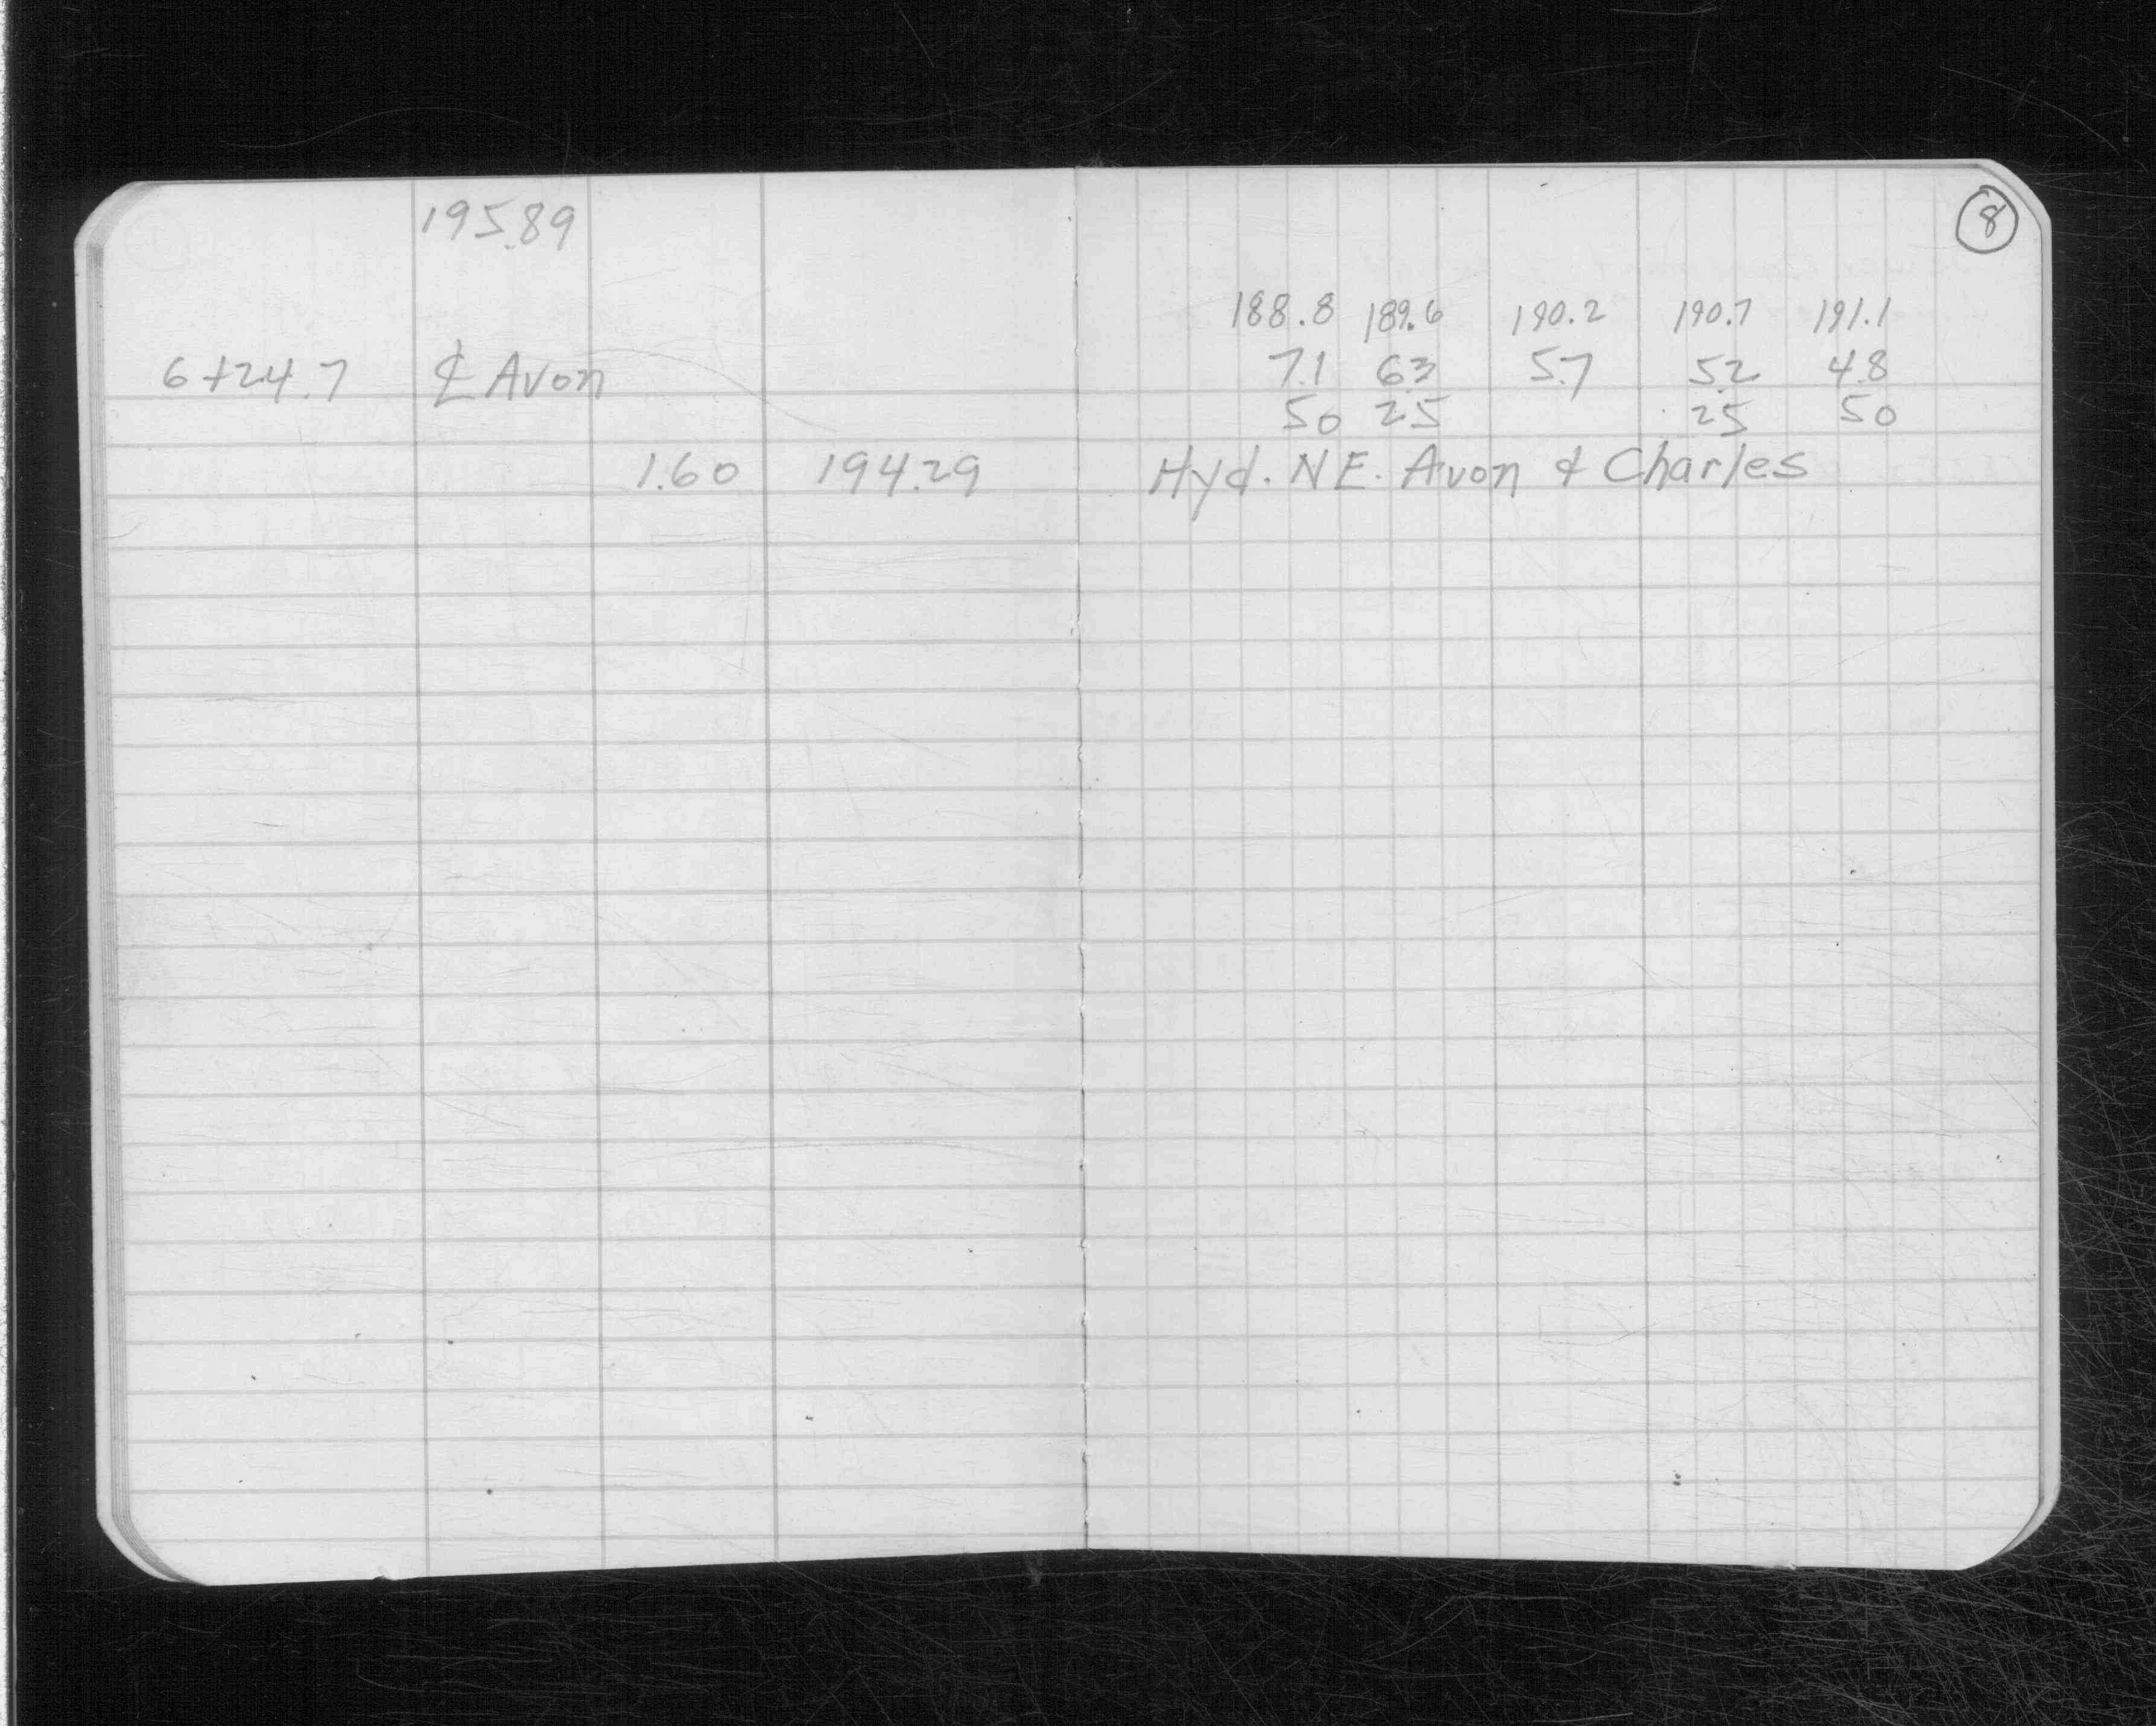 195.89
8
188.8 189.6 190.2 190.7 191.1
6+24.7 ℄ Avon 7.1 6.3 5.7 5.2 4.8
50 25 25 50
1.60 194.29 Hyd. N E. Avon & Charles